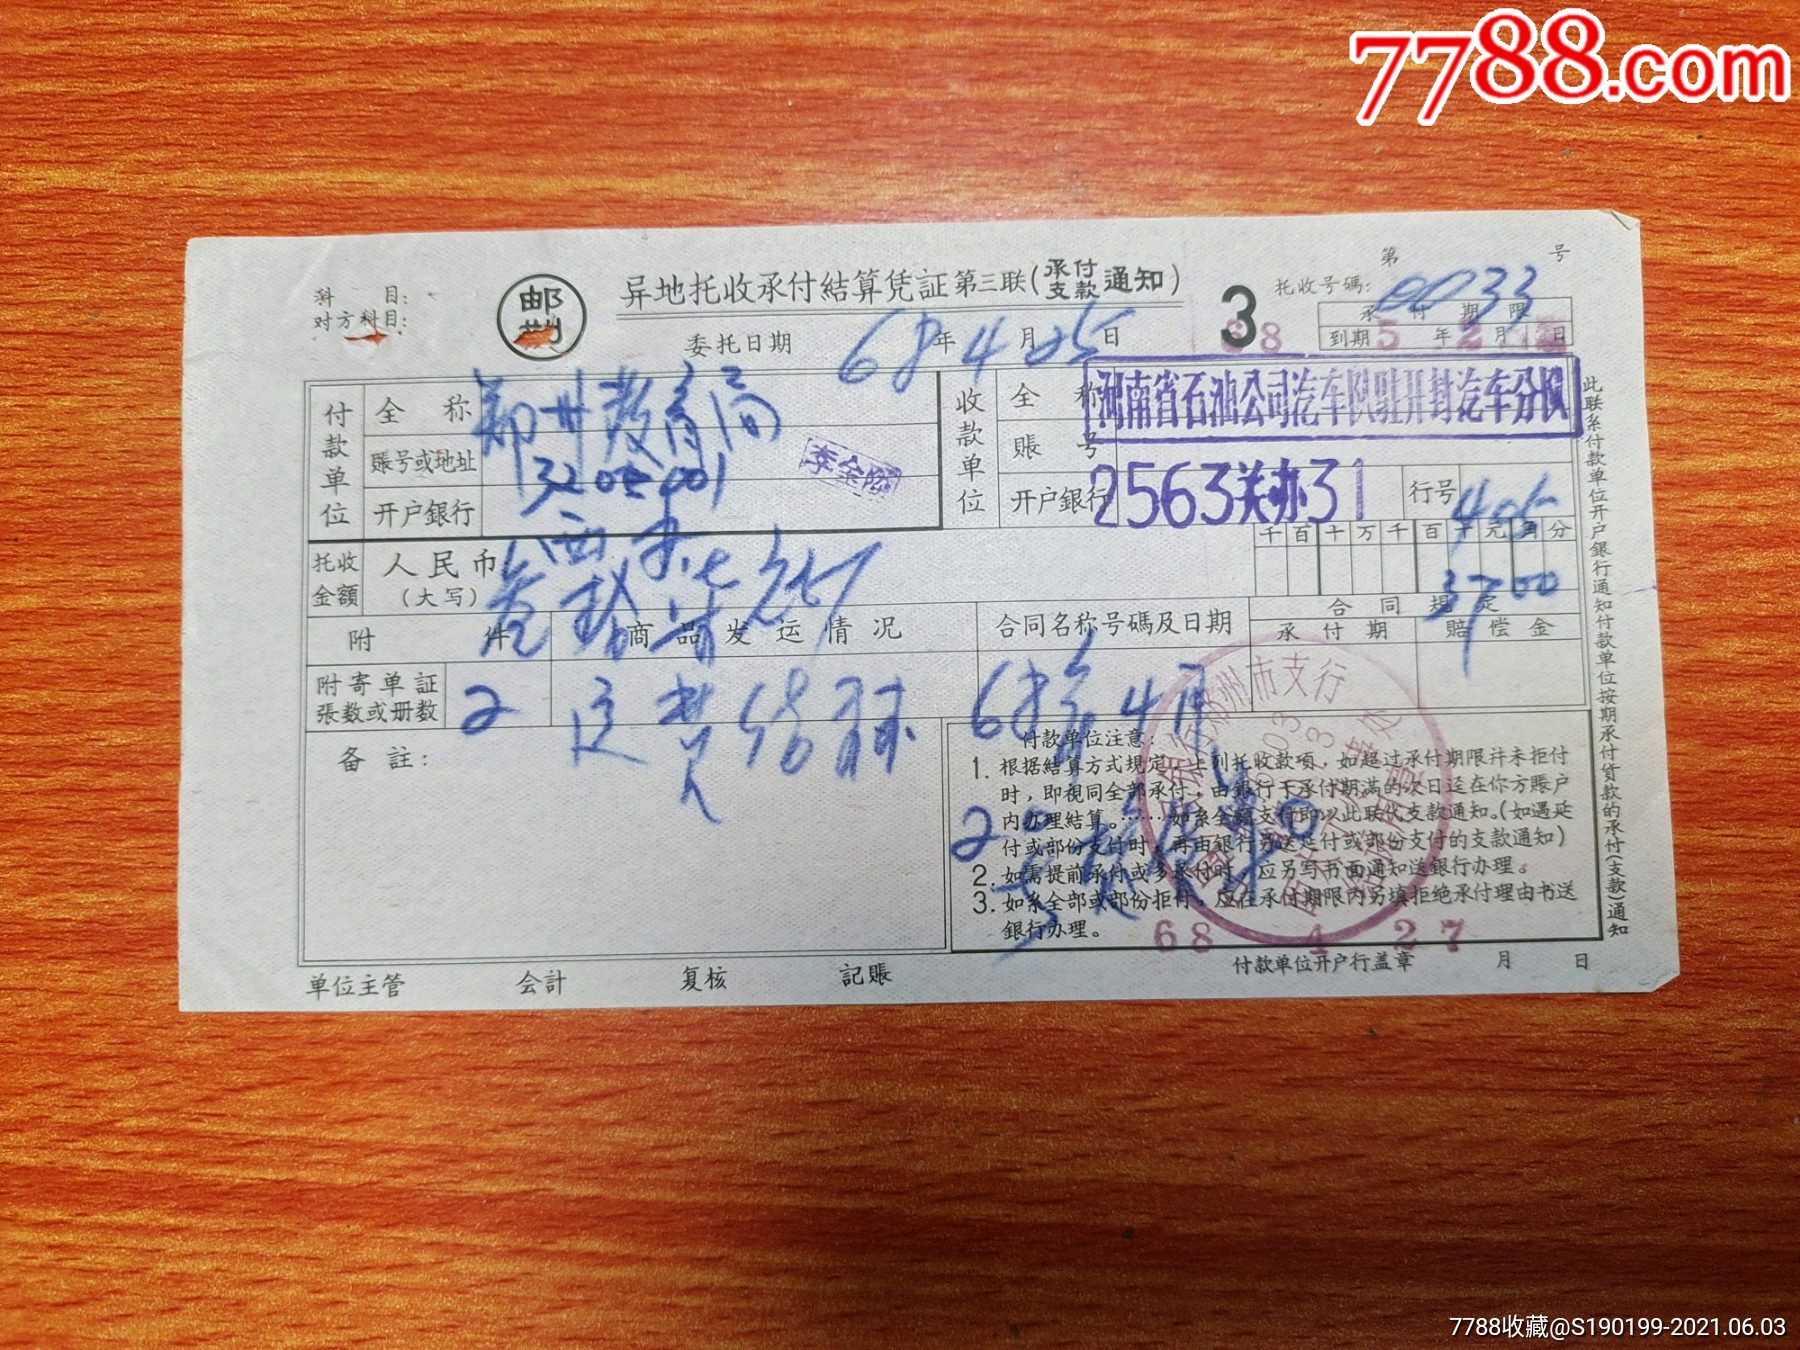 7788.com
科 目:
对方科目:
邮
异地托收承付結算凭証第三联(承付支款通知)
委托日期 68年4月25日
3
第 号
托收号碼: 0033
承付期限
到期 5年2月 日
68
付款单位
全称 郑州教育局
賬号或地址 3202001
开户銀行
李
收款单位
全称 河南省石油公司汽车队駐开封汽车分队
賬号
开户銀行 2563关办31
行号
托收金額
人民币
(大写) 叁拾柒元
千百十万千百 元角分
3700
附件
商品发运情况
合同名称号碼及日期
合同規定
承付期
賠偿金
附寄单証
張数或册数
2
运费
68年4月
备註:
付款单位注意:
1. 根据結算方式規定,上列托收款項,如超过承付期限并未拒付
时,即視同全部承付,由銀行于承付期滿的次日逕在你方賬户
内办理結算。……如系全額支付即以此联代支款通知。(如遇延
付或部份支付时,再由銀行另送延付或部份支付的支款通知)
2. 如需提前承付或多承付时,应另写书面通知送銀行办理。
3. 如系全部或部份拒付,应在承付期限内另填拒绝承付理由书送
銀行办理。
州市支行
68 4 27
此联系付款单位开户銀行通知付款单位按期承付貨款的承付(支款)通知
单位主管 会計 复核 記賬
付款单位开户行盖章 月 日
7788收藏@S190199-2021.06.03